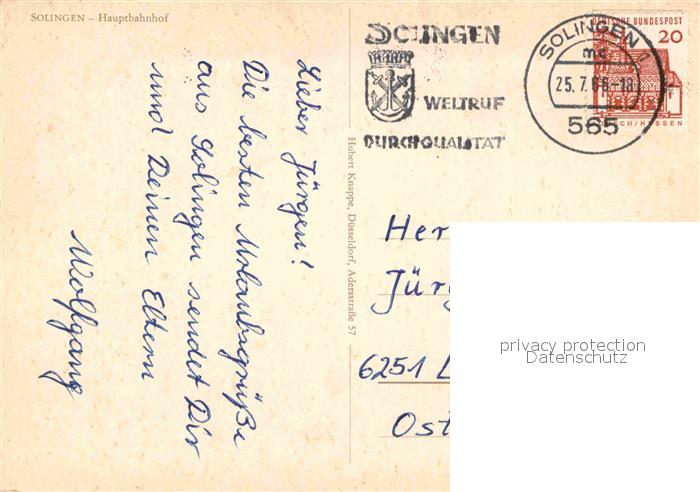 SOLINGEN – Hauptbahnhof
Lieber Jürgen!
Die besten Urlaubsgrüße
aus Solingen sendet Dir
und Deinen Eltern
Wolfgang
Hubert Knappe, Düsseldorf, Adersstraße 57
SOLINGEN
WELTRUF
DURCH QUALITÄT
SOLINGEN 1
mc
25.7.66-18
565
DEUTSCHE BUNDESPOST
20
CH/HESSEN
Her
Jürg
6251 L
Ost
privacy protection
Datenschutz